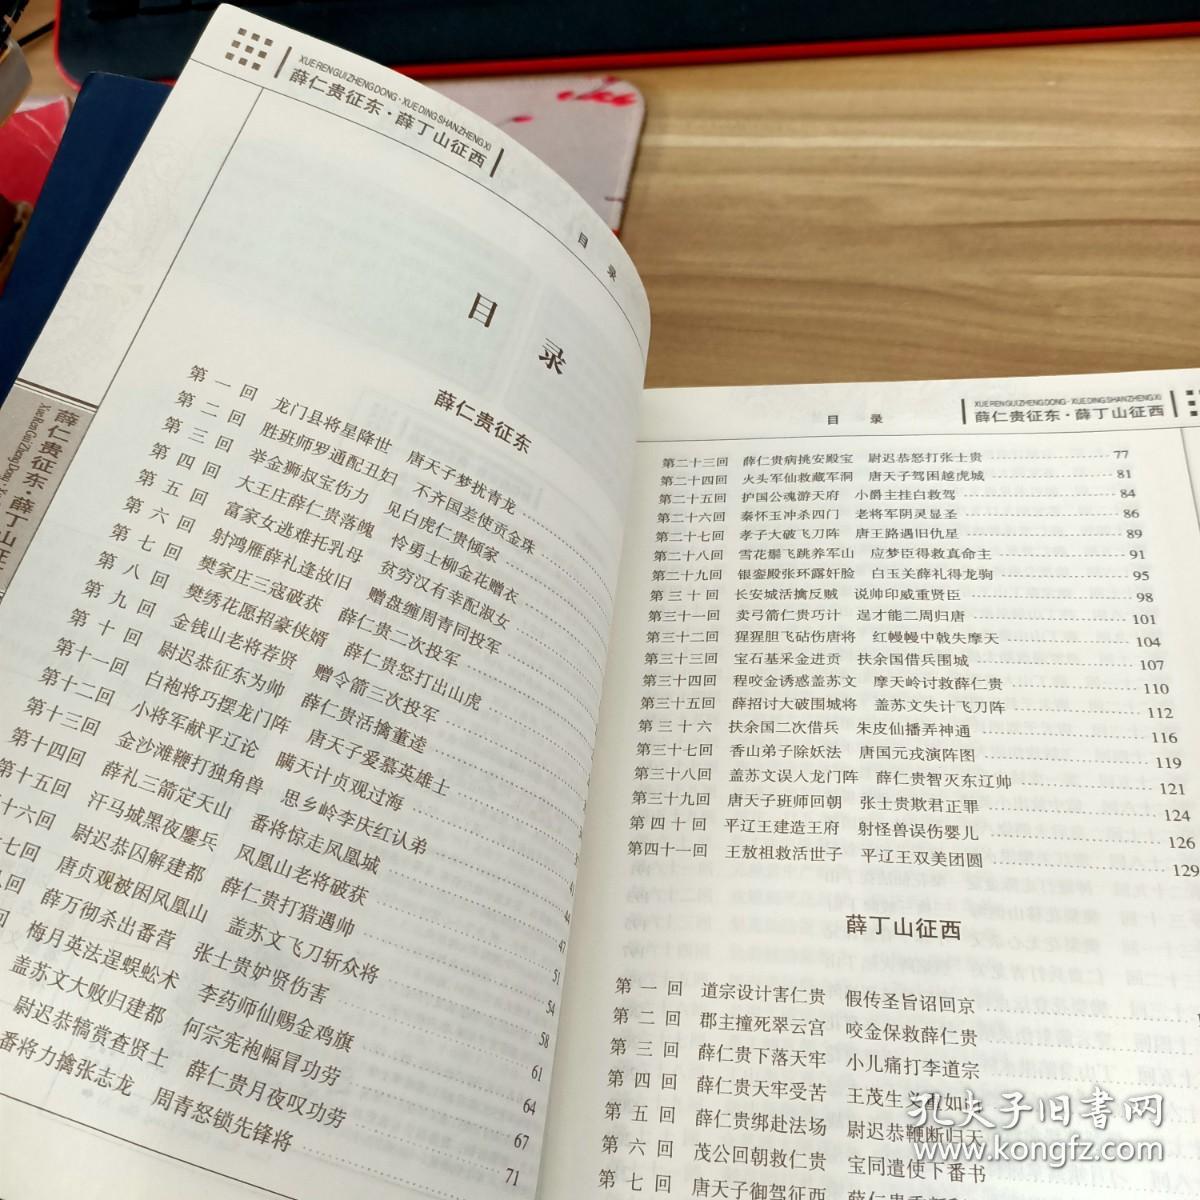 XUERENGUIZHENGDONG·XUEDINGSHANZHENGXI
薛仁贵征东·薛丁山征西
目 录
目 录
薛仁贵征东
第一回 龙门县将星降世 唐天子梦扰青龙
第二回 胜班师罗通配丑妇 不齐国差使贡金珠
第三回 举金狮叔宝伤力 见白虎仁贵倾家
第四回 大王庄薛仁贵落魄 怜勇士柳金花赠衣
第五回 富家女逃难托乳母 贫穷汉有幸配淑女
第六回 射鸿雁薛礼逢故旧 赠盘缠周青同投军
第七回 樊家庄三寇破获 薛仁贵二次投军
第八回 樊绣花愿招豪侠婿 薛仁贵怒打出山虎
第九回 金钱山老将荐贤 赠令箭三次投军
第十回 尉迟恭征东为帅 薛仁贵活擒董逵
第十一回 白袍将巧摆龙门阵 唐天子爱慕英雄士
第十二回 小将军献平辽论 瞒天计贞观过海
第十三回 金沙滩鞭打独角兽 思乡岭李庆红认弟
第十四回 薛礼三箭定天山 番将惊走凤凰城
第十五回 汗马城黑夜鏖兵 凤凰山老将破获 44
十六回 尉迟恭囚解建都 薛仁贵打猎遇帅 47
七回 唐贞观被困凤凰山 盖苏文飞刀斩众将 51
回 薛万彻杀出番营 张士贵妒贤伤害 54
回 梅月英法逞蜈蚣术 李药师仙赐金鸡旗 58
盖苏文大败归建都 何宗宪袍幅冒功劳 61
尉迟恭犒赏查贤士 薛仁贵月夜叹功劳 64
番将力擒张志龙 周青怒锁先锋将 67
71
薛仁贵征东·薛丁山征
目 录
XUERENGUIZHENGDONG·XUEDINGSHANZHENGXI
薛仁贵征东·薛丁山征西
第二十三回 薛仁贵病挑安殿宝 尉迟恭怒打张士贵 77
第二十四回 火头军仙救藏军洞 唐天子驾困越虎城 81
第二十五回 护国公魂游天府 小爵主挂白救驾 84
第二十六回 秦怀玉冲杀四门 老将军阴灵显圣 86
第二十七回 孝子大破飞刀阵 唐王路遇旧仇星 89
第二十八回 雪花鬃飞跳养军山 应梦臣得救真命主 91
第二十九回 银銮殿张环露奸脸 白玉关薛礼得龙驹 95
第三十回 长安城活擒反贼 说帅印威重贤臣 98
第三十一回 卖弓箭仁贵巧计 逞才能二周归唐 101
第三十二回 猩猩胆飞砧伤唐将 红幔幔中戟失摩天 104
第三十三回 宝石基采金进贡 扶余国借兵围城 107
第三十四回 程咬金诱惑盖苏文 摩天岭讨救薛仁贵 110
第三十五回 薛招讨大破围城将 盖苏文失计飞刀阵 112
第三十六 扶余国二次借兵 朱皮仙播弄神通 116
第三十七回 香山弟子除妖法 唐国元戎演阵图 119
第三十八回 盖苏文误入龙门阵 薛仁贵智灭东辽帅 121
第三十九回 唐天子班师回朝 张士贵欺君正罪 124
第四十回 平辽王建造王府 射怪兽误伤婴儿 126
第四十一回 王敖祖救活世子 平辽王双美团圆 129
薛丁山征西
第一回 道宗设计害仁贵 假传圣旨诏回京
第二回 郡主撞死翠云宫 咬金保救薛仁贵
第三回 薛仁贵下落天牢 小儿痛打李道宗
第四回 薛仁贵天牢受苦 王茂生义重如
第五回 薛仁贵绑赴法场 尉迟恭鞭断归天
第六回 茂公回朝救仁贵 宝同遣使下番书
第七回 唐天子御驾征西 薛仁贵
孔夫子旧书网
www.kongfz.com